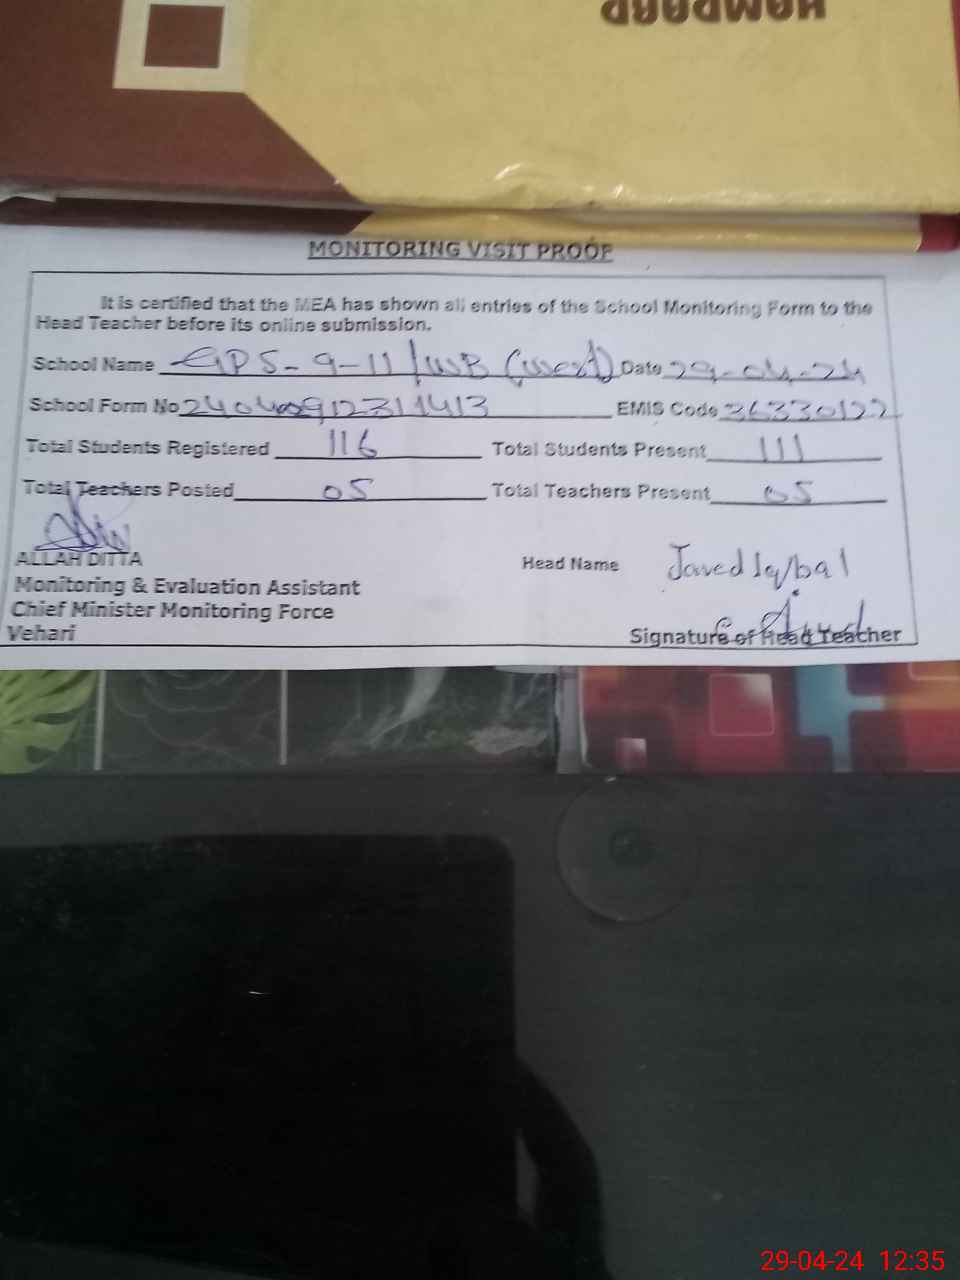 MONITORING VISIT PROOF
It is certified that the MEA has shown all entries of the School Monitoring Form to the
Head Teacher before its online submission.
School Name GPS-9-11/WB (West) Date 29-04-24
School Form No EMIS Code 36330122
Total Students Registered 116 Total Students Present 111
Total Teachers Posted 05 Total Teachers Present 05
ALLAH DITTA
Head Name Javed Iqbal
Monitoring & Evaluation Assistant
Chief Minister Monitoring Force
Vehari
Signature of Head Teacher
29-04-24 12:35